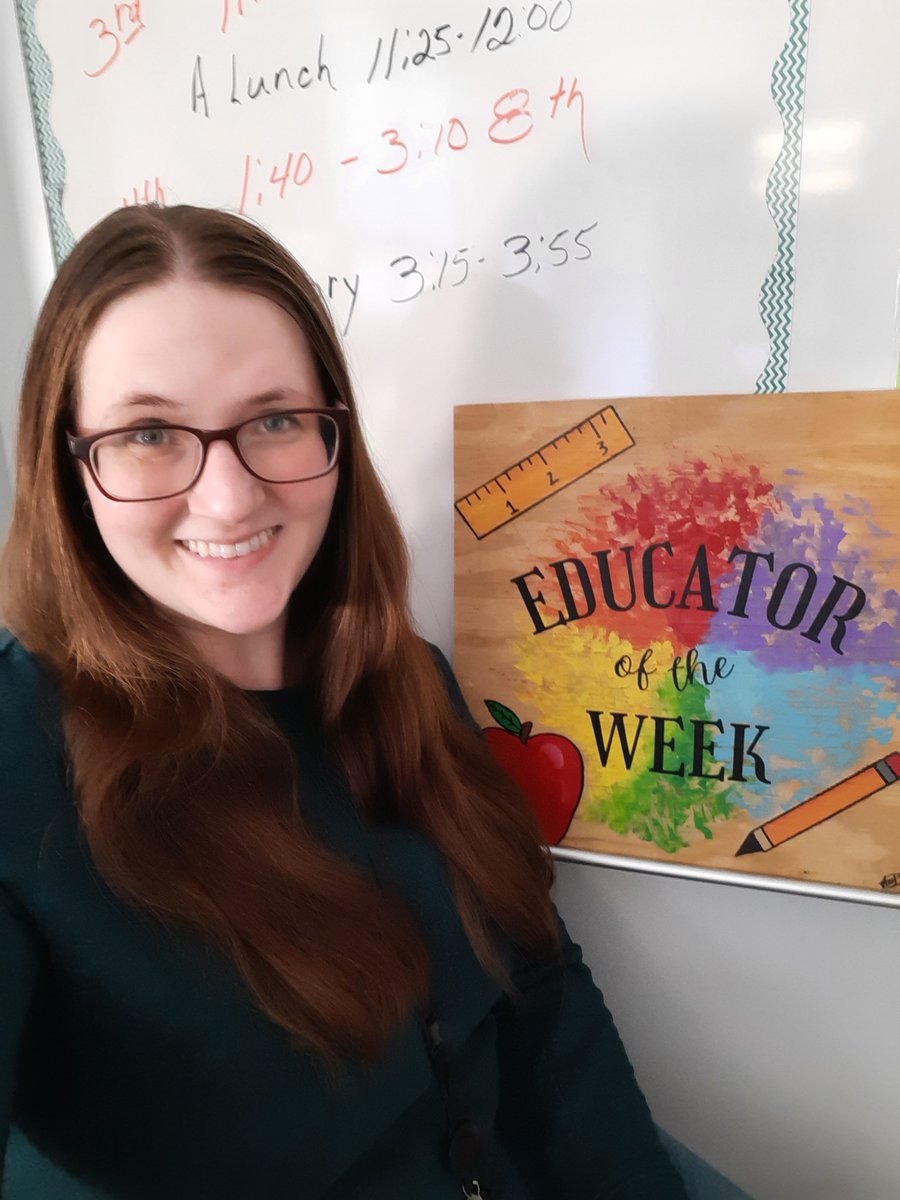 3rd
A Lunch 11:25-12:00
1:40 - 3:10 8th
ry 3:15-3:55
1 2 3
EDUCATOR
of the
WEEK